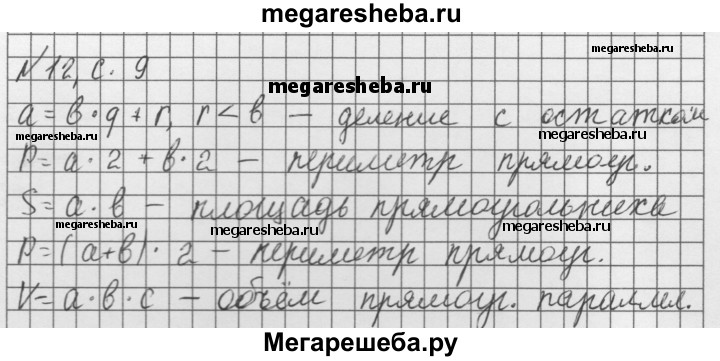 megaresheba.ru
megaresheba.ru
№12, с. 9
megaresheba.ru
a = b·q + r, r < b — деление с остатком
megaresheba.ru
megaresheba.ru
P = a·2 + b·2 — периметр прямоуг.
S = a·b — площадь прямоугольника
megaresheba.ru
megaresheba.ru
megaresheba.ru
P = (a+b)·2 — периметр прямоуг.
V = a·b·c — объём прямоуг. паралл.
megaresheba.ru
megaresheba.ru
Мегарешеба.ру